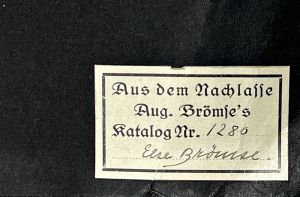 Aus dem Nachlasse
Aug. Brömse's
Katalog Nr. 1280
Else Brömse.